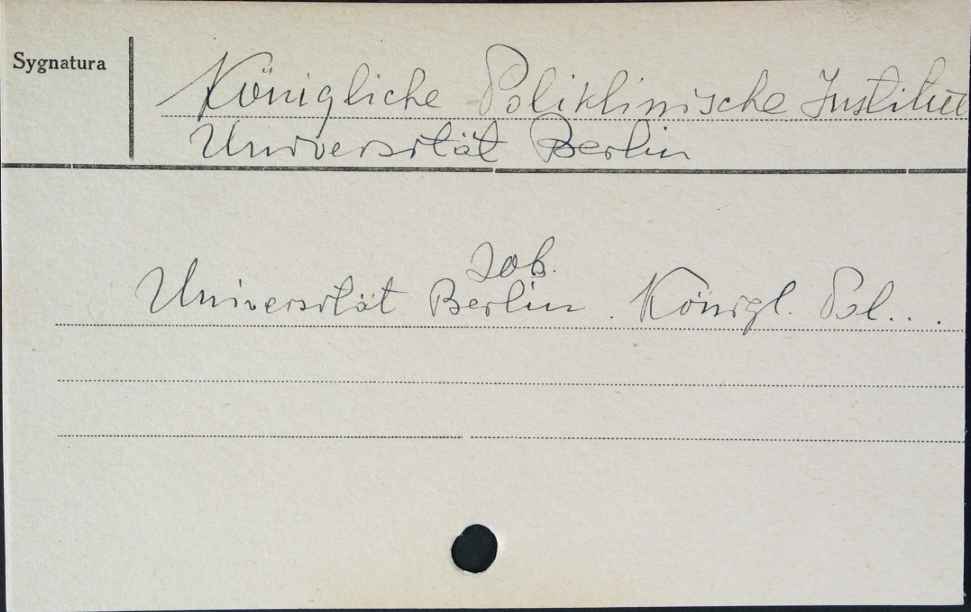 Sygnatura
Königliche Poliklinische Institut
Universität Berlin
zob.
Universität Berlin. Königl. Pol...